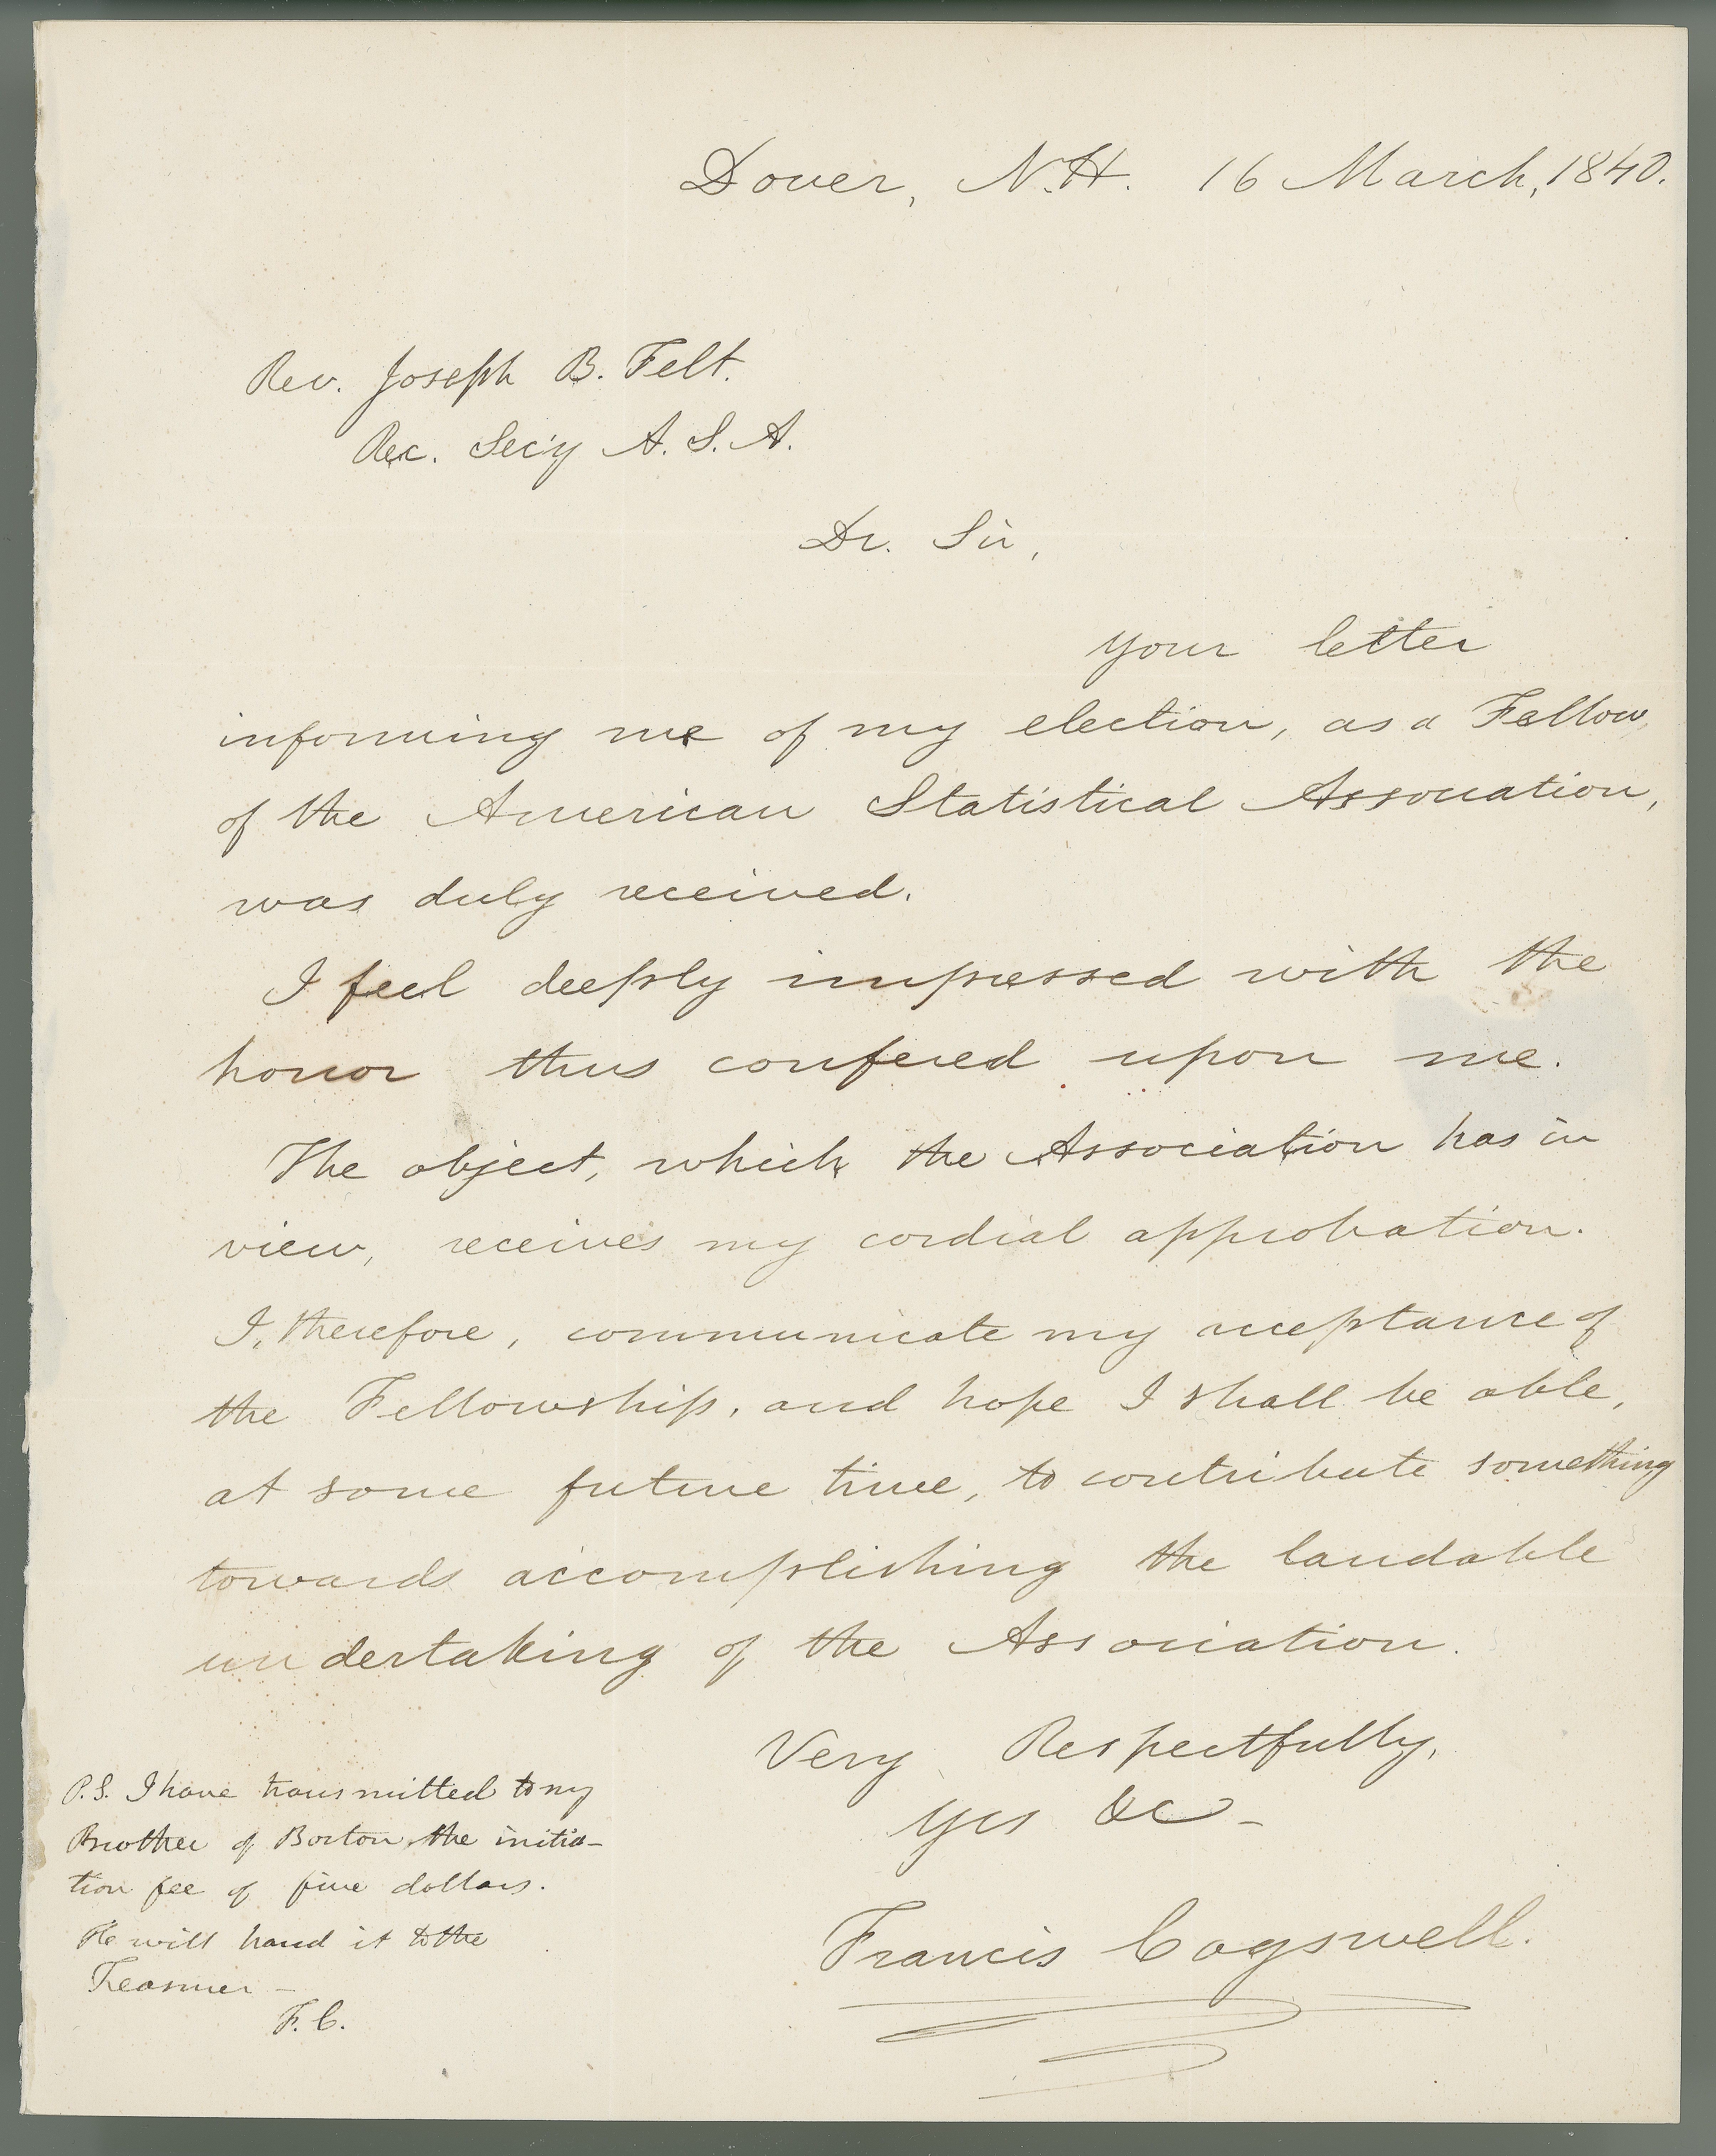 Dover, N.H. 16 March, 1840.
Rev. Joseph B. Felt.
Rec. Sec'y A. S. A.
Dr. Sir,
your letter
informing me of my election, as a Fellow,
of the American Statistical Association,
was duly received.
I feel deeply impressed with the
honor thus confered upon me.
The object, which the Association has in
view, receives my cordial approbation.
I, therefore, communicate my acceptance of
the Fellowship, and hope I shall be able,
at some future time, to contribute something
towards accomplishing the laudable
undertaking of the Association.
Very Respectfully,
Yrs &c -
Francis Cogswell.
P.S. I have transmitted to my
Brother of Boston, the initia-
tion fee of five dollars.
He will hand it to the
Treasurer -
F. C.